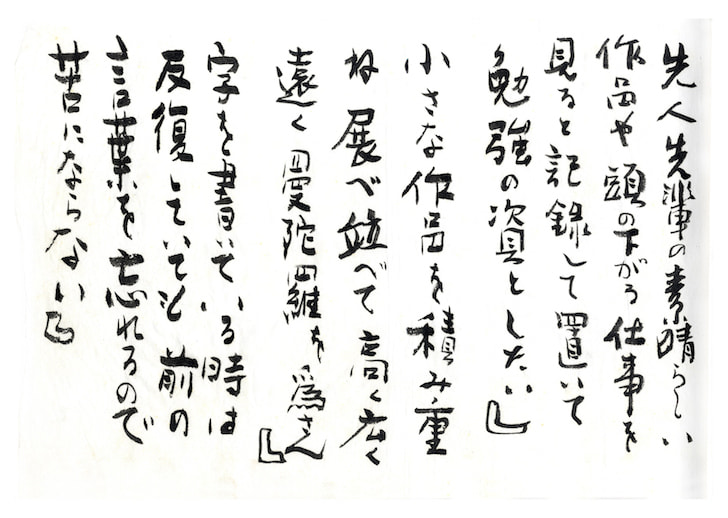 先人先輩の素晴らしい
作品や頭の下がる仕事を
見ると記録して置いて
勉強の資としたい」
小さな作品を積み重
ね展べ並べて高く広く
遠く曼陀羅を為さん」
字を書いている時は
反復していても前の
言葉を忘れるので
苦にならない